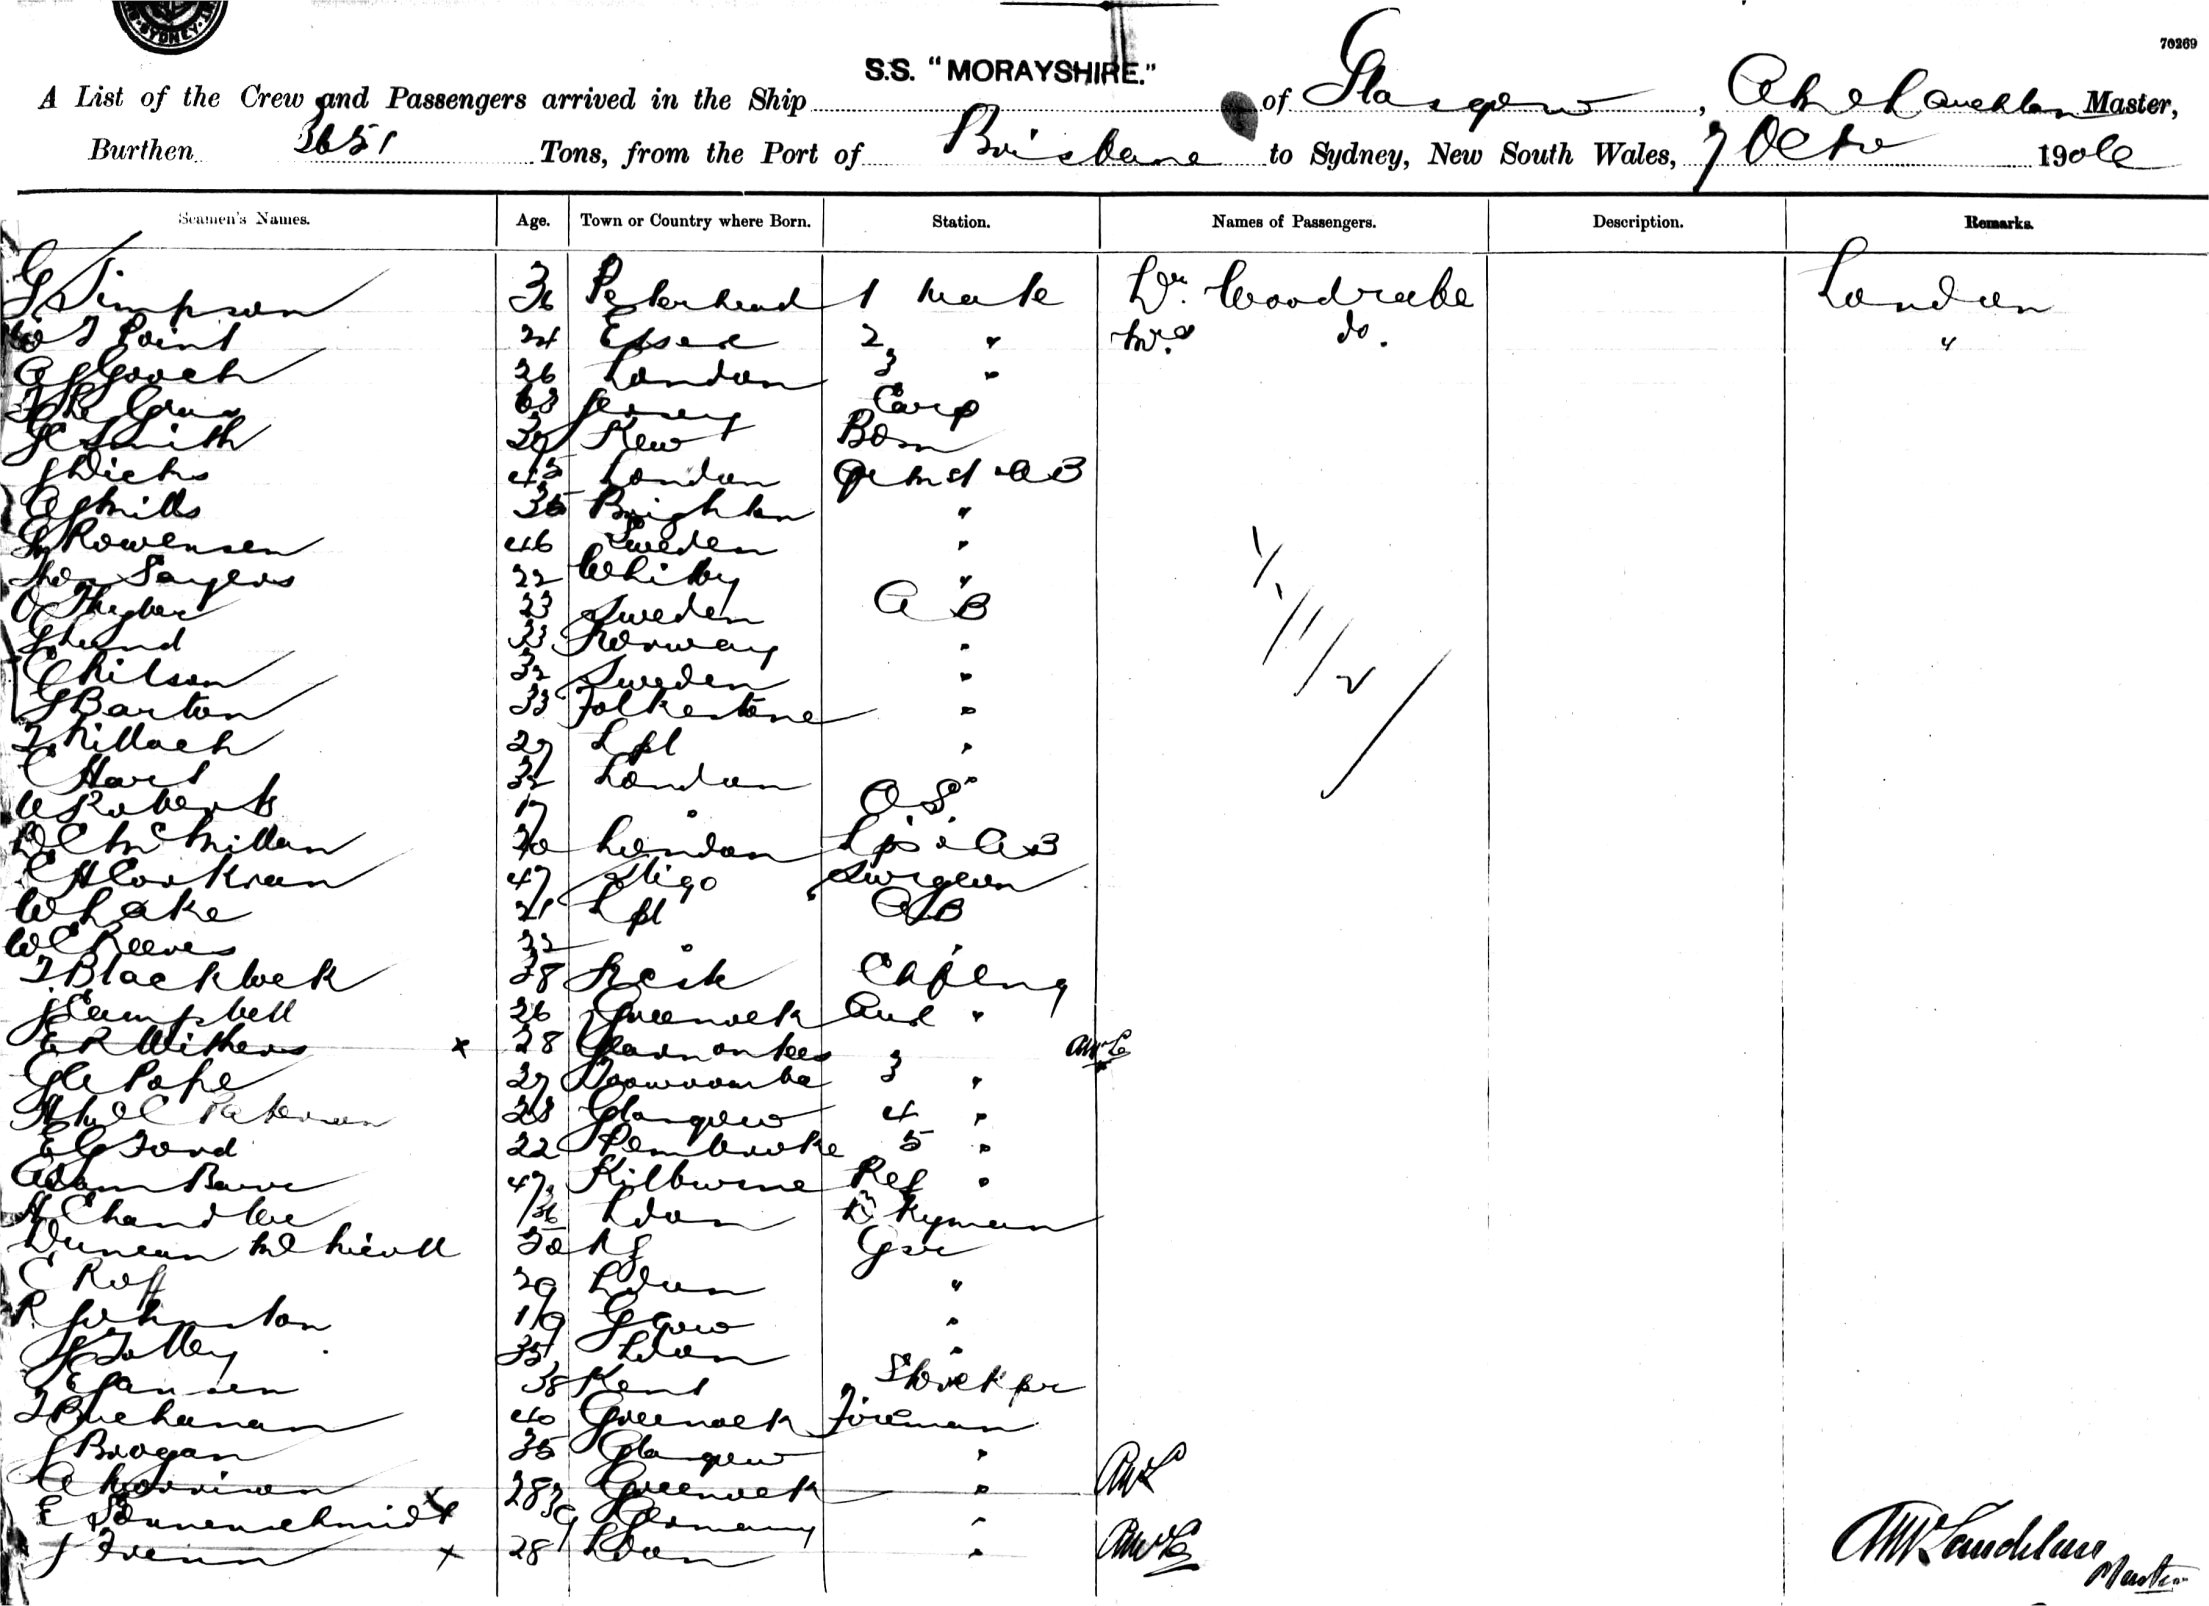 SYDNEY
70269
S.S. "MORAYSHIRE."
A List of the Crew and Passengers arrived in the Ship of Glasgow, Master,
Burthen 3651 Tons, from the Port of Brisbane to Sydney, New South Wales, 7 Octr 190
Seamen's Names. Age. Town or Country where Born. Station. Names of Passengers. Description. Remarks.
G Simpson 36 Peterhead 1 Mate Dr. Woodrube London
W T Point 24 Essex 2 " Mrs. do. "
A G Gooch 26 London 3 "
63 Jersey Carp
Smith Kew Bosn
J Dicks 45 London Qr Mst AB
A J Mills 35 Brighton "
Rowensen 46 Sweden "
Thos Sayers 22 Whitby "
O 23 Sweden A B
J Lund 33 Norway "
C Nilson 32 Sweden "
G Barton 33 Folkestone "
T Killoch 27 Lpl "
C Hart 32 London "
A Roberts 17 " O S
D C McMillan 20 London Lps & AB
C H Corkran 47 Sligo Surgeon
W Lake 21 Lpl AB
W C Reeves 22 " "
T. Blacklock 38 Leith Ch Eng
J Campbell 26 Greenock 2nd "
E R Withers x 28 3
G A Pope 27 Toowoomba 3 "
Paterson 23 Glasgow 4 "
E G Ford 22 Pembroke 5 "
Adam Barr 47 Kilburne Ref "
H Chandler 36 Ldon Dkyman
Duncan McNicoll NZ Gsr
C Roff 29 Ldon "
R Johnston 19 Ggow "
J Tolley 35 Ldon "
E Jansen 38 Kent Storekpr
T Buchanan 40 Greenock Fireman
J Brogan 35 Glasgow "
A Morrison 28 Greenock "
E Sonnenschmidt x 39 Germany "
J x 28 Ldon "
McLauchlan
Master